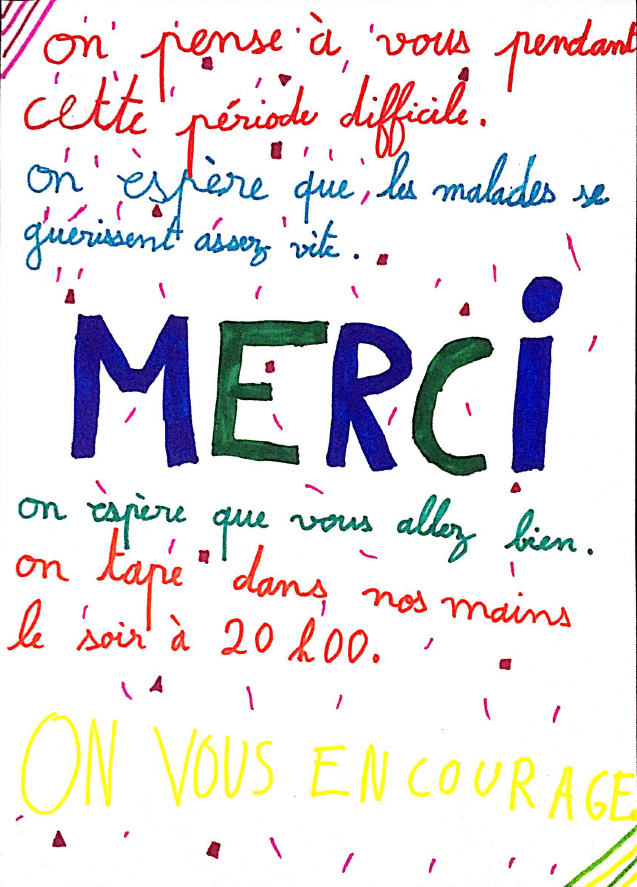 on pense à vous pendant
cette période difficile.
on espère que les malades se
guérissent assez vite.
MERCi
on espère que vous allez bien.
on tape dans nos mains
le soir à 20 h00.
ON VOUS ENCOURAGE